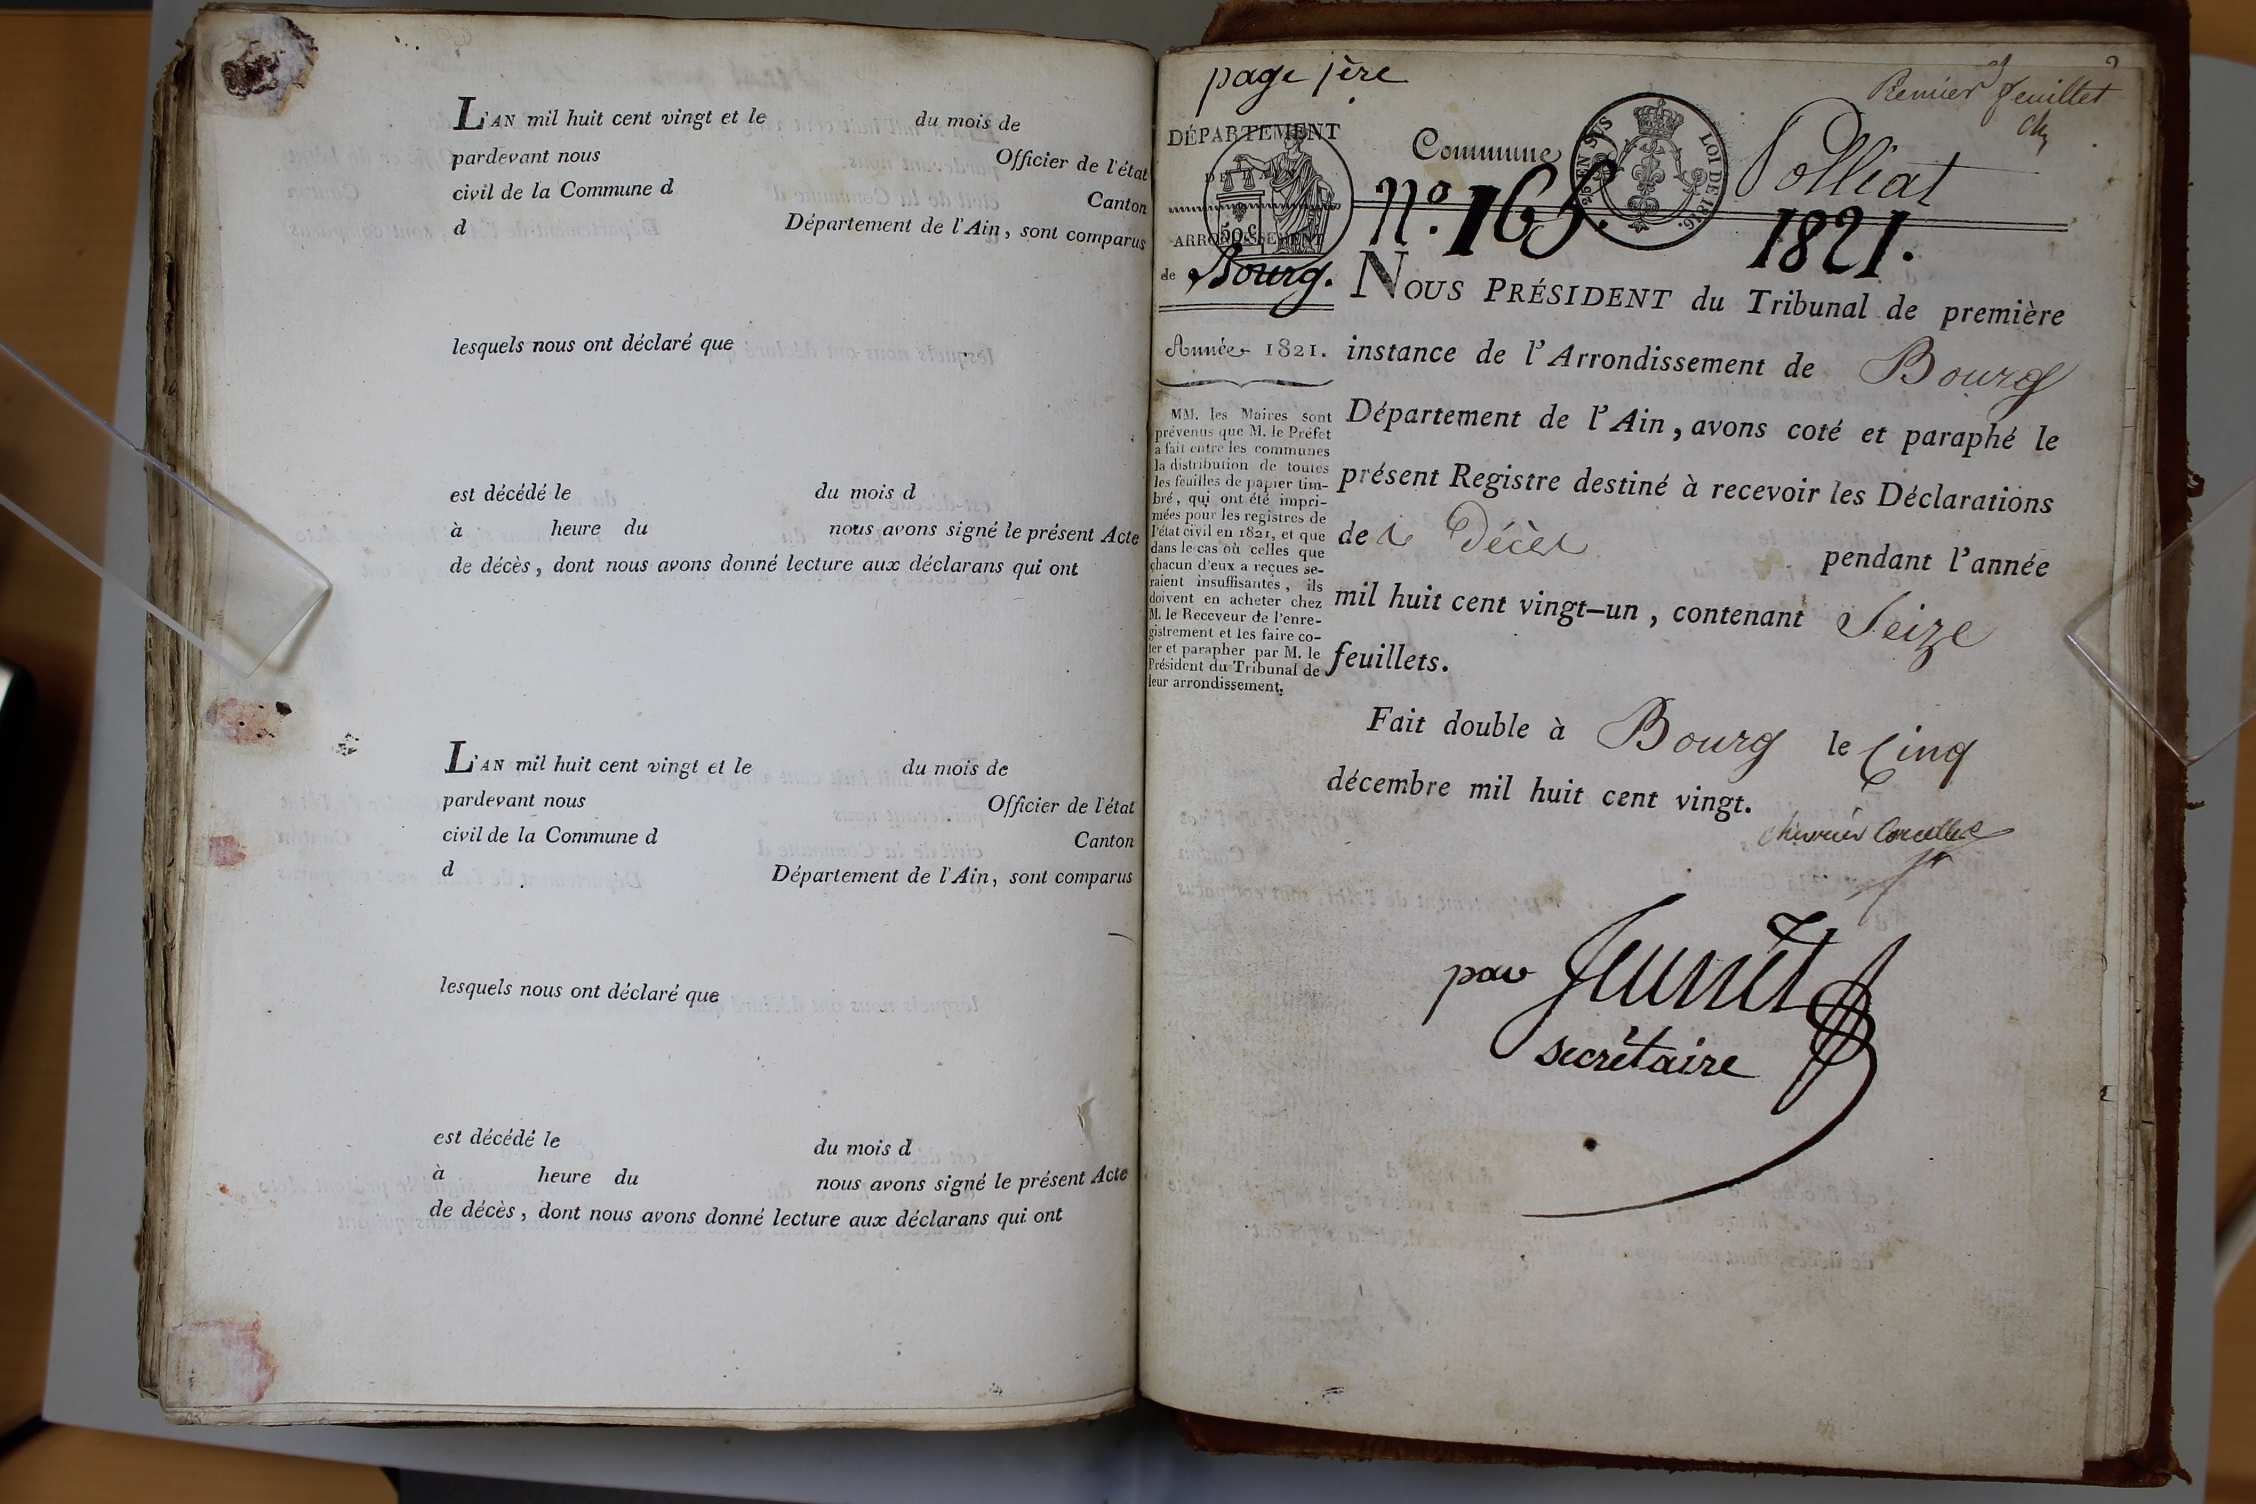 L'AN mil huit cent vingt et le du mois de
pardevant nous Officier de l'état
civil de la Commune d Canton
d Département de l'Ain, sont comparus
lesquels nous ont déclaré que
est décédé le du mois d
à heure du nous avons signé le présent Acte
de décès, dont nous avons donné lecture aux déclarans qui ont
L'AN mil huit cent vingt et le du mois de
pardevant nous Officier de l'état
civil de la Commune d Canton
d Département de l'Ain, sont comparus
lesquels nous ont déclaré que
est décédé le du mois d
à heure du nous avons signé le présent Acte
de décès, dont nous avons donné lecture aux déclarans qui ont
page 1ère
Premier feuillet
DÉPARTEMENT
DE
50 c
ARRONDISSEMENT
de Bourg.
Année 1821.
MM. les Maires sont
prévenus que M. le Préfet
a fait entre les communes
la distribution de toutes
les feuilles de papier tim-
bré, qui ont été impri-
mées pour les registres de
l'état civil en 1821, et que
dans le cas où celles que
chacun d'eux a reçues se-
raient insuffisantes, ils
doivent en acheter chez
M. le Receveur de l'enre-
gistrement et les faire co-
ter et parapher par M. le
Président du Tribunal de
leur arrondissement.
Commune Polliat
EN SUS LOI DE 1816.
N.º 165. 1821.
NOUS PRÉSIDENT du Tribunal de première
instance de l'Arrondissement de Bourg
Département de l'Ain, avons coté et paraphé le
présent Registre destiné à recevoir les Déclarations
de Décès pendant l'année
mil huit cent vingt-un, contenant Seize
feuillets.
Fait double à Bourg le Cinq
décembre mil huit cent vingt.
par
secrétaire